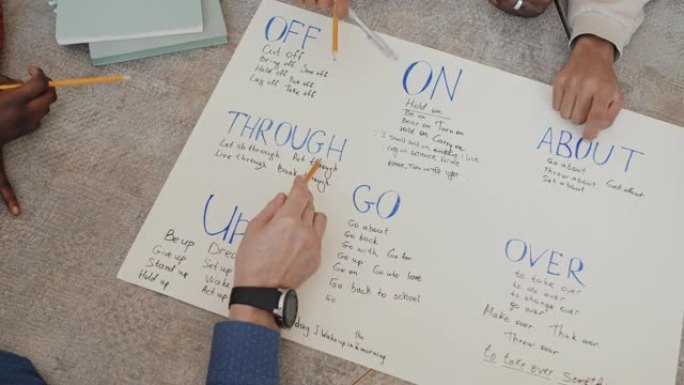 OFF
Cut off
Bring off See off
Hold off Put off
Lay off Take off
ON
Hold on
Be on
Bear on Turn on
Hold on Carry on
ABOUT
Go about
Throw about Get about
Set about
THROUGH
Let sb through Put through
Live through Break through
UP
Be up
Give up Set up
Stand up Wake
Hold up Act up
day I wake up in the morning
GO
Go about
Go back
Go with Go for
Go up Go into love
Go on
Go back to school
Go
OVER
to take over
to do over
to change over
go over
Make over Think over
Throw over
to take over